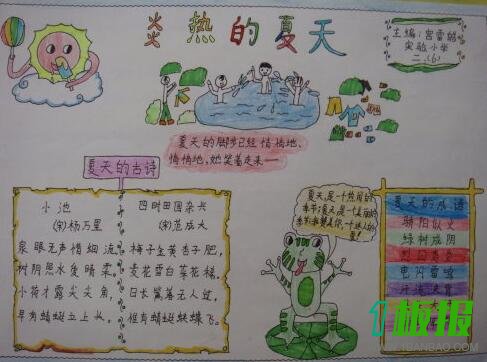 炎热的夏天
主编:宫雷
实验小学
二.(6)
夏天的脚步已经悄悄地、
悄悄地,她笑着走来——
夏天的古诗
小池
(宋)杨万里
泉眼无声惜细流,
树阴照水爱晴柔。
小荷才露尖尖角,
早有蜻蜓立上头。
四时田园杂兴
(宋)范成大
梅子金黄杏子肥,
麦花雪白菜花稀。
日长篱落无人过,
但有蜻蜓蛱蝶飞。
夏天,是一个炎热的
季节;夏天,是一个美丽的
夏天的成语
骄阳似火
绿树成阴
烈日炎炎
电闪雷鸣
板报
WWW.1BANBAO.COM